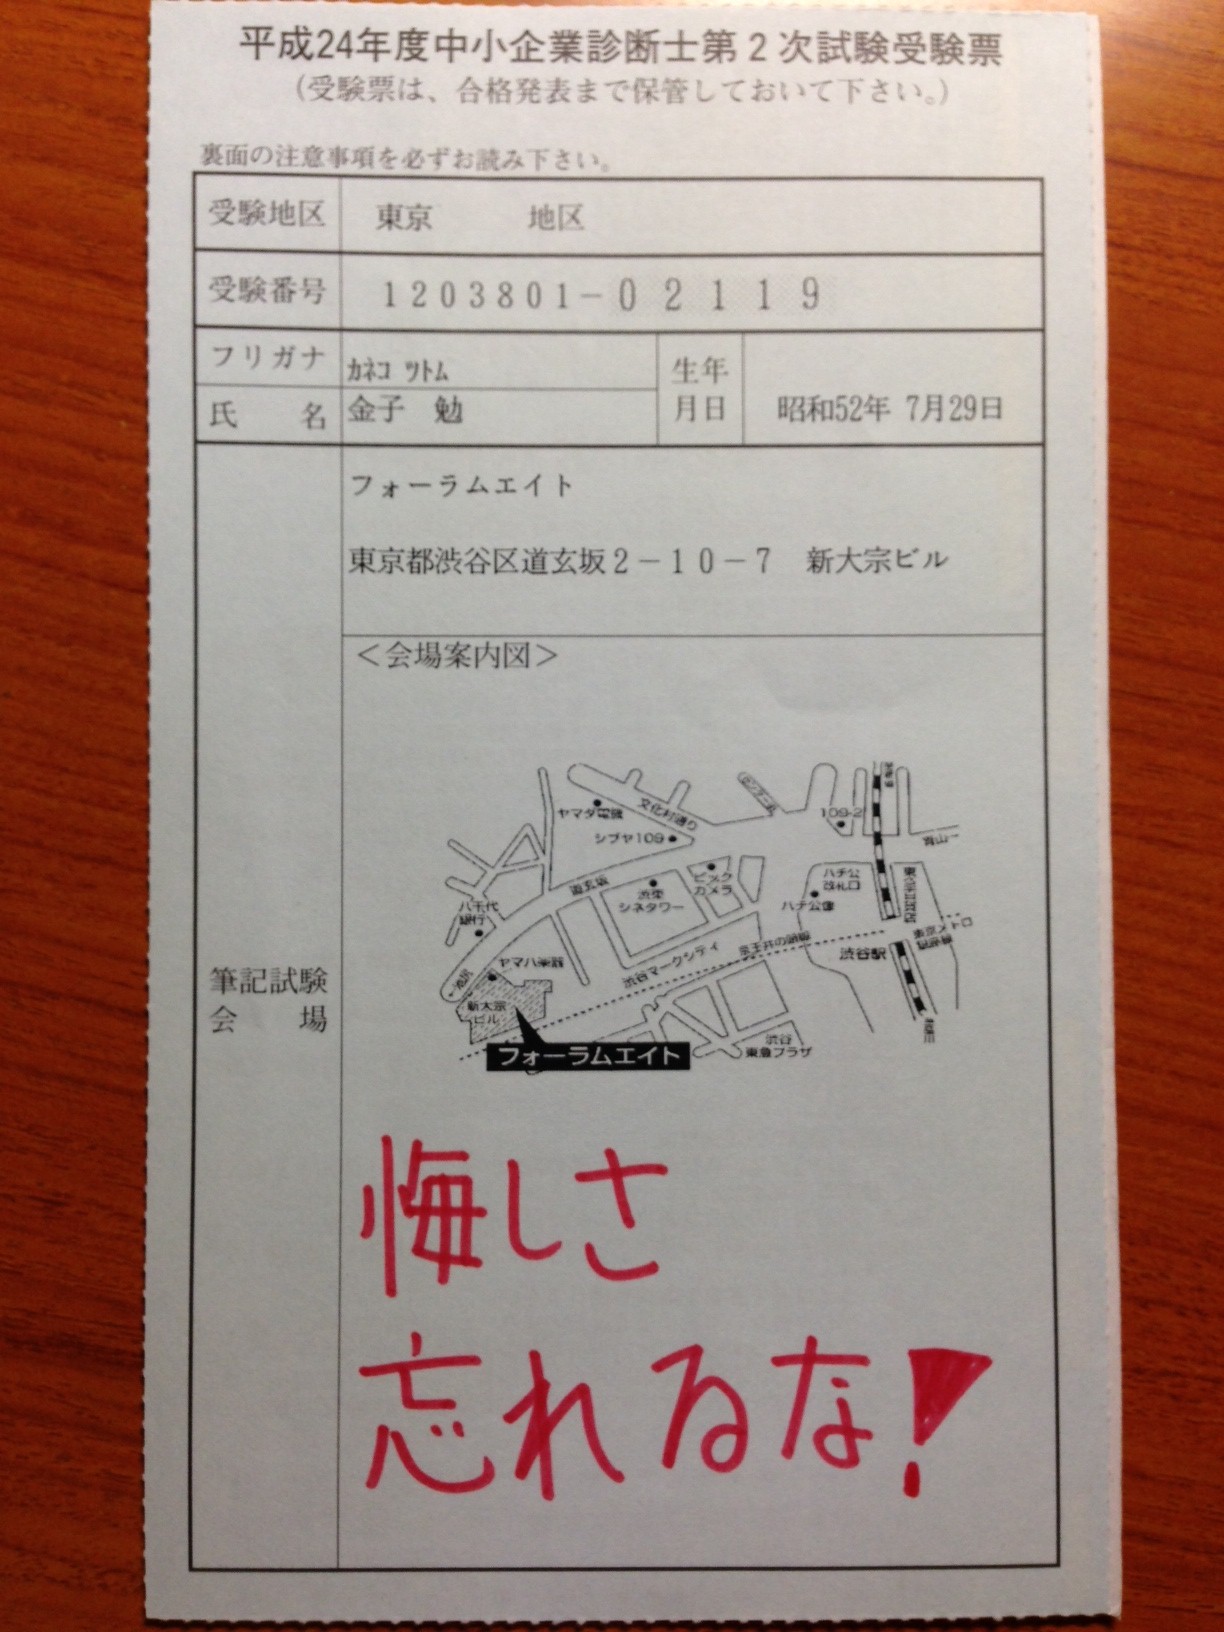 平成24年度中小企業診断士第2次試験受験票
(受験票は、合格発表まで保管しておいて下さい。)
裏面の注意事項を必ずお読み下さい。
受験地区 東京 地区
受験番号 1203801-02119
フリガナ カネコ ツトム
氏 名 金子 勉
生年月日 昭和52年 7月29日
筆記試験会場
フォーラムエイト
東京都渋谷区道玄坂2-10-7 新大宗ビル
<会場案内図>
ヤマダ電機
文化村通り
センター街
109-2
シブヤ109
道玄坂
渋東シネタワー
ビックカメラ
ハチ公改札口
ハチ公像
青山→
八千代銀行
ヤマハ楽器
渋谷マークシティ
京王井の頭線
渋谷駅
東京メトロ
新大宗ビル
フォーラムエイト
渋谷東急プラザ
悔しさ
忘れるな!